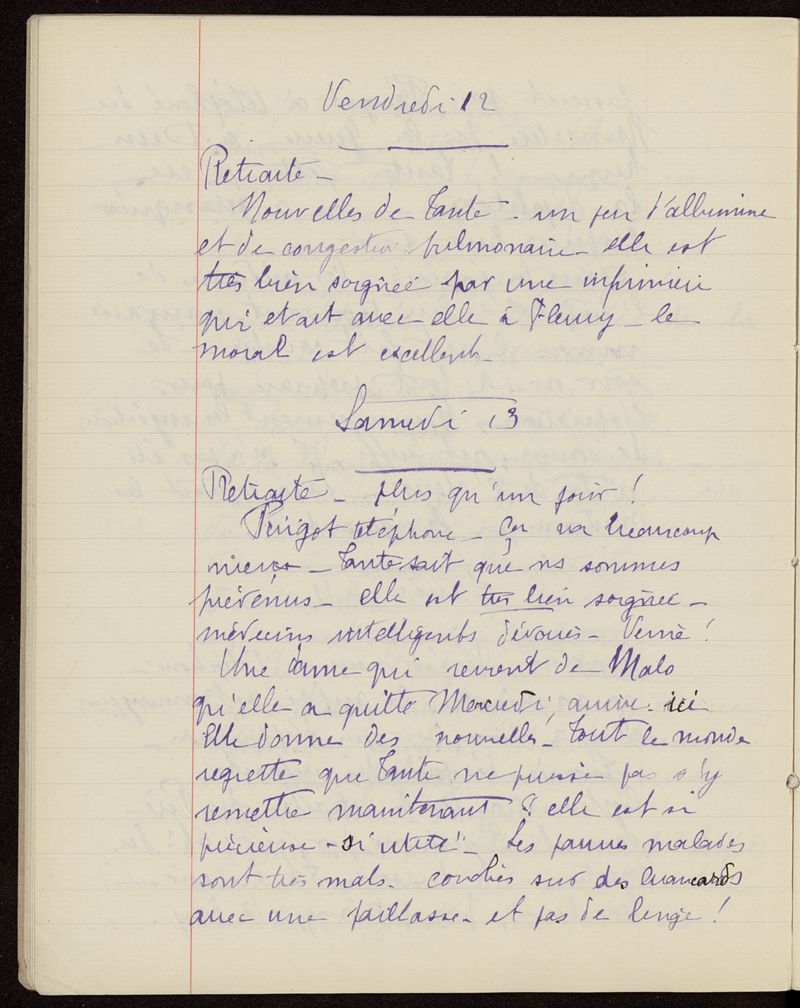 Vendredi 12
Retraite -
Nouvelles de Tante - un peu d'albumine
et de congestion pulmonaire - elle est
très bien soignée par une infirmière
qui etait avec elle à Fleury - le
moral est excellent -
Samedi 13
Retraite - plus qu'un jour !
Périgot téléphone - Ça va beaucoup
mieux - Tante sait que ns sommes
prévenus - elle est très bien soignée -
médecins intelligents dévoués - Veine !
Une dame qui revient de Malo
qu'elle a quitté Mercredi, arrive ici
Elle donne des nouvelles - Tout le monde
regrette que Tante ne puisse pas s'y
remettre maintenant "elle est si
précieuse - si utile" - Les pauvres malades
sont très mals - couchés sur des brancards
avec une paillasse - et pas de linge !